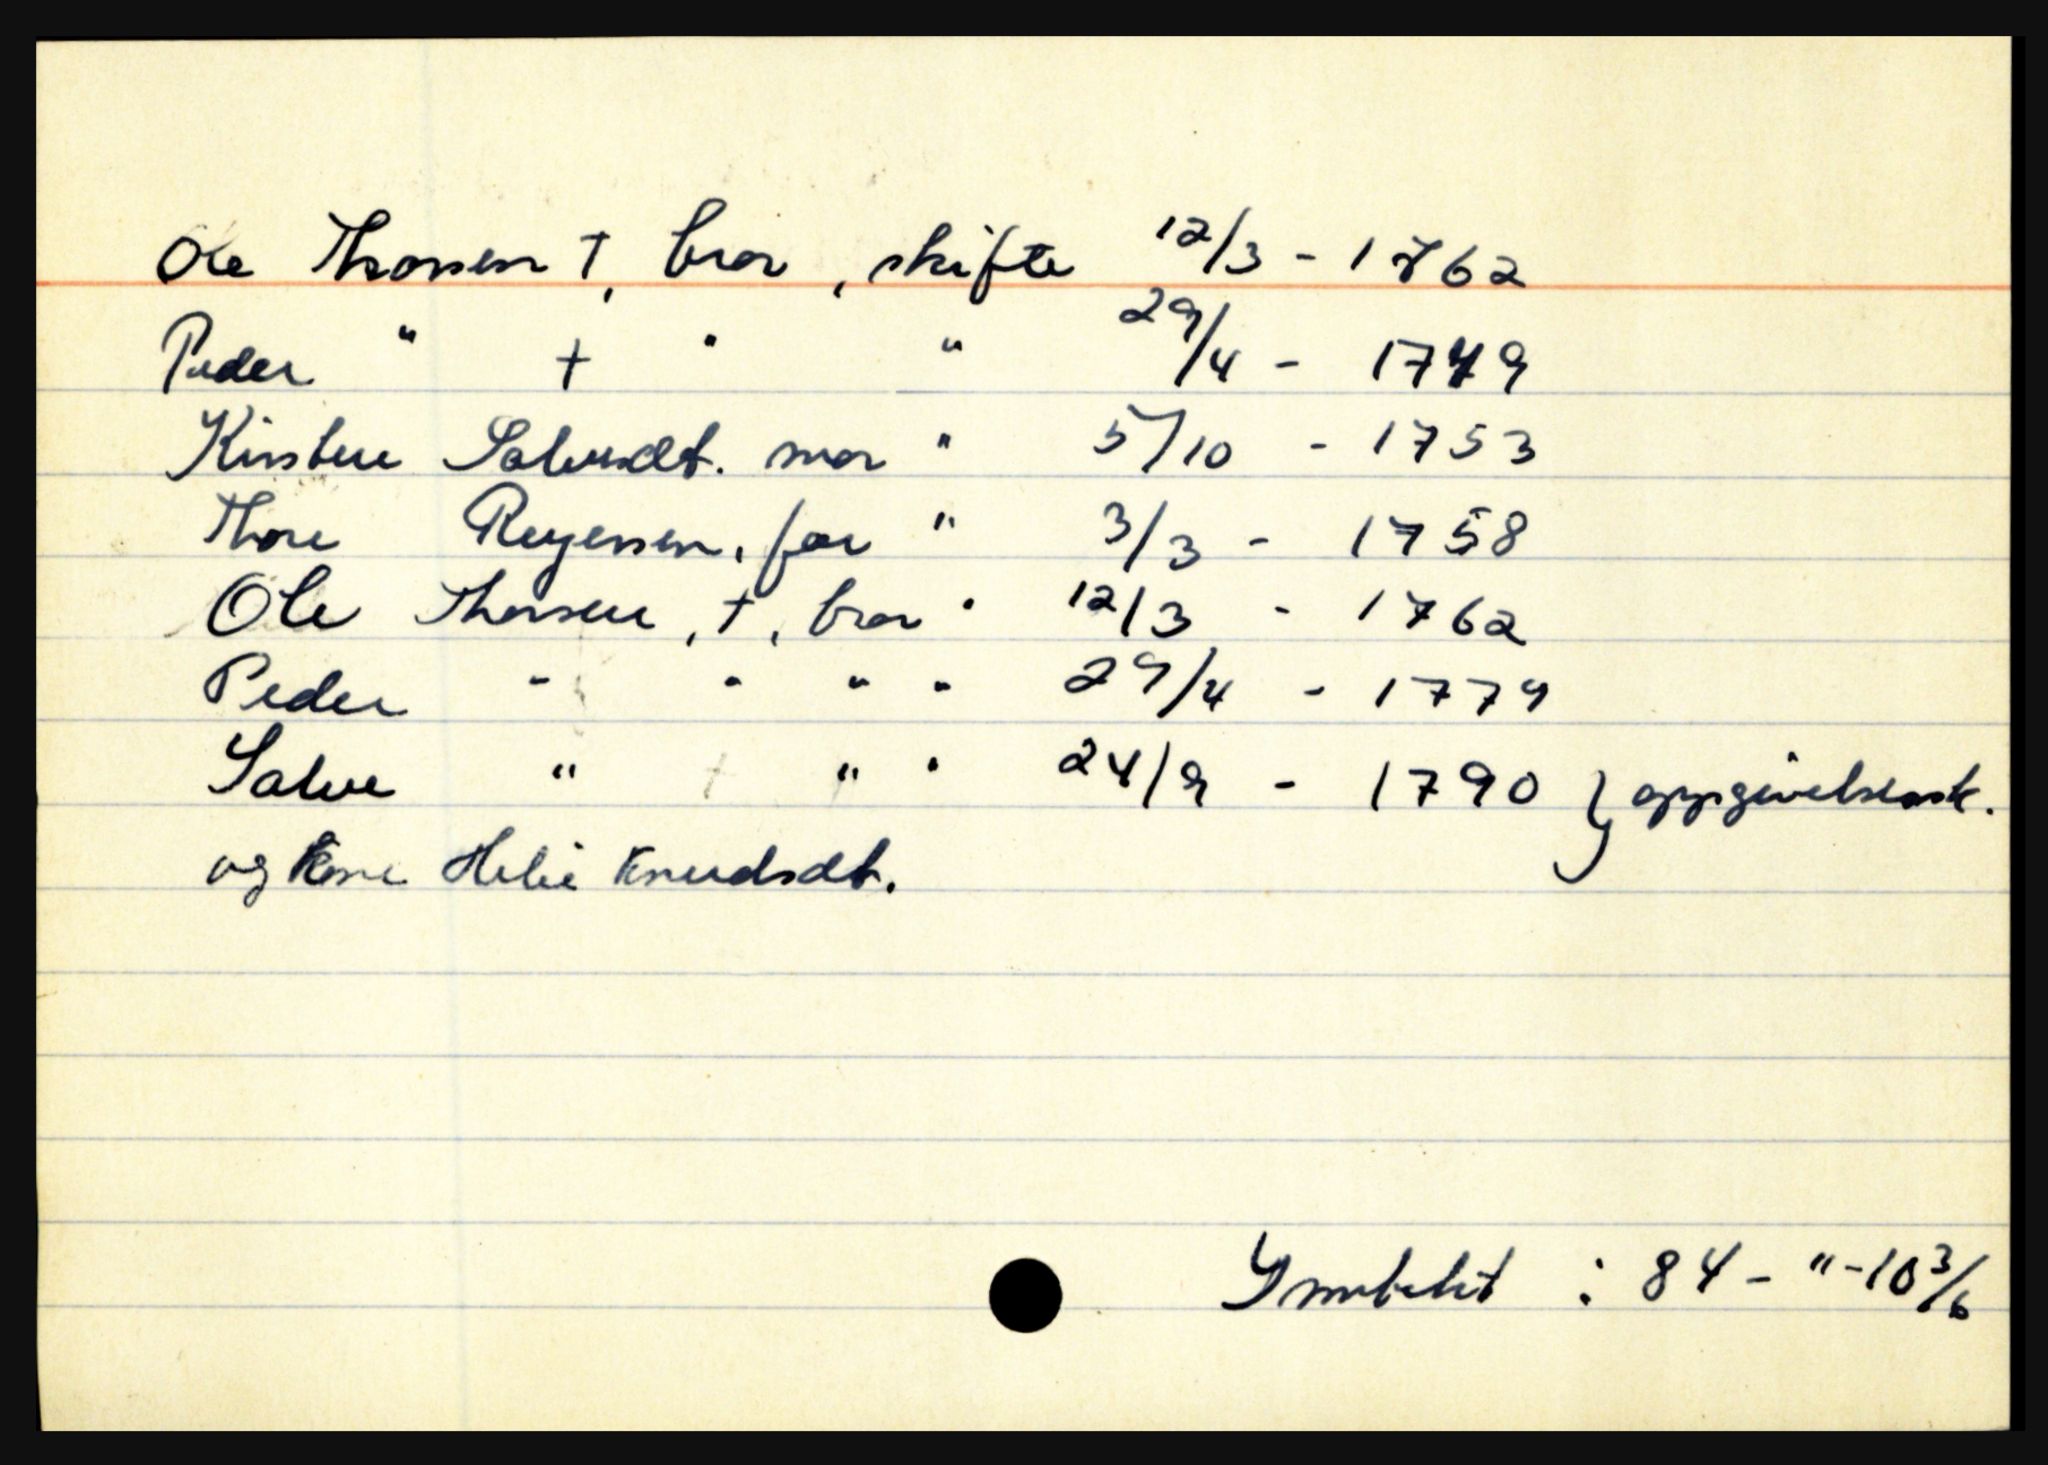 Ole Thorssen †, bror, skifte 12/3 - 1762
Peder " † " " 29/4 - 1779
Kirstine Salvesdt. mor " 5/10 - 1753
Thore Reyerssen, far " 3/3 - 1758
Ole Thorsen, †, bror " 12/3 - 1762
Peder " " " " 29/4 - 1779
Salve " † " " 24/9 - 1790 } oppgivelsessk.
og kone Helie Knudsdt.
: 84 - " - 10 3/6